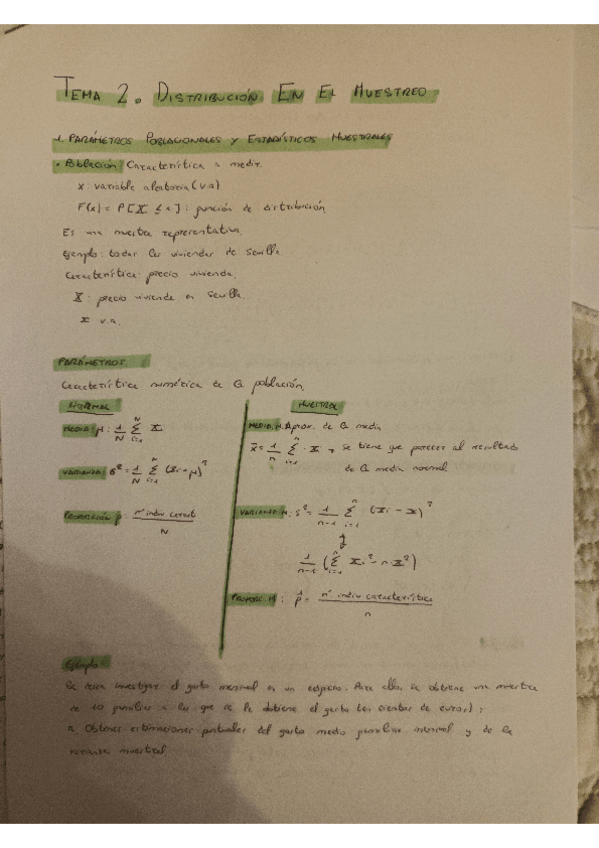 TEMA 2. DISTRIBUCIÓN EN EL MUESTREO.
1. PARÁMETROS POBLACIONALES Y ESTADÍSTICOS MUESTRALES
• Población: Característica a medir.
X: variable aleatoria (v.a)
F(x) = P[X ≤ x]: función de distribución
Es una muestra representativa.
Ejemplo: todas las viviendas de Sevilla
Característica: precio vivienda.
X: precio vivienda en Sevilla.
x v.a.
PARÁMETROS.
Característica numérica de la población.
NORMAL
MEDIA: μ: 1/N Σ(i=1, N) x
VARIANZA: σ² = 1/N Σ(i=1, N) (xi - μ)²
PROPORCIÓN p = nº indiv caract / N
MUESTRAL
MEDIA. M. Aprox. de la media
x̄ = 1/n Σ(i=1, n) · x → se tiene que parecer al resultado
de la media normal
VARIANZA M: s² = 1/n-1 Σ(i=1, n) (xi - x)²
1/n-1 (Σ(i=1, n) xi² - n · x²)
PROPORC. M: p̂ = nº indiv característica / n
Ejemplo
Se desea investigar el gasto mensual en un Para ello, se obtiene una muestra
de 10 familias a las que se le obtiene el gasto (en cientos de euros);
a. Obtener estimaciones puntuales del gasto medio familiar mensual y de la
varianza muestral.